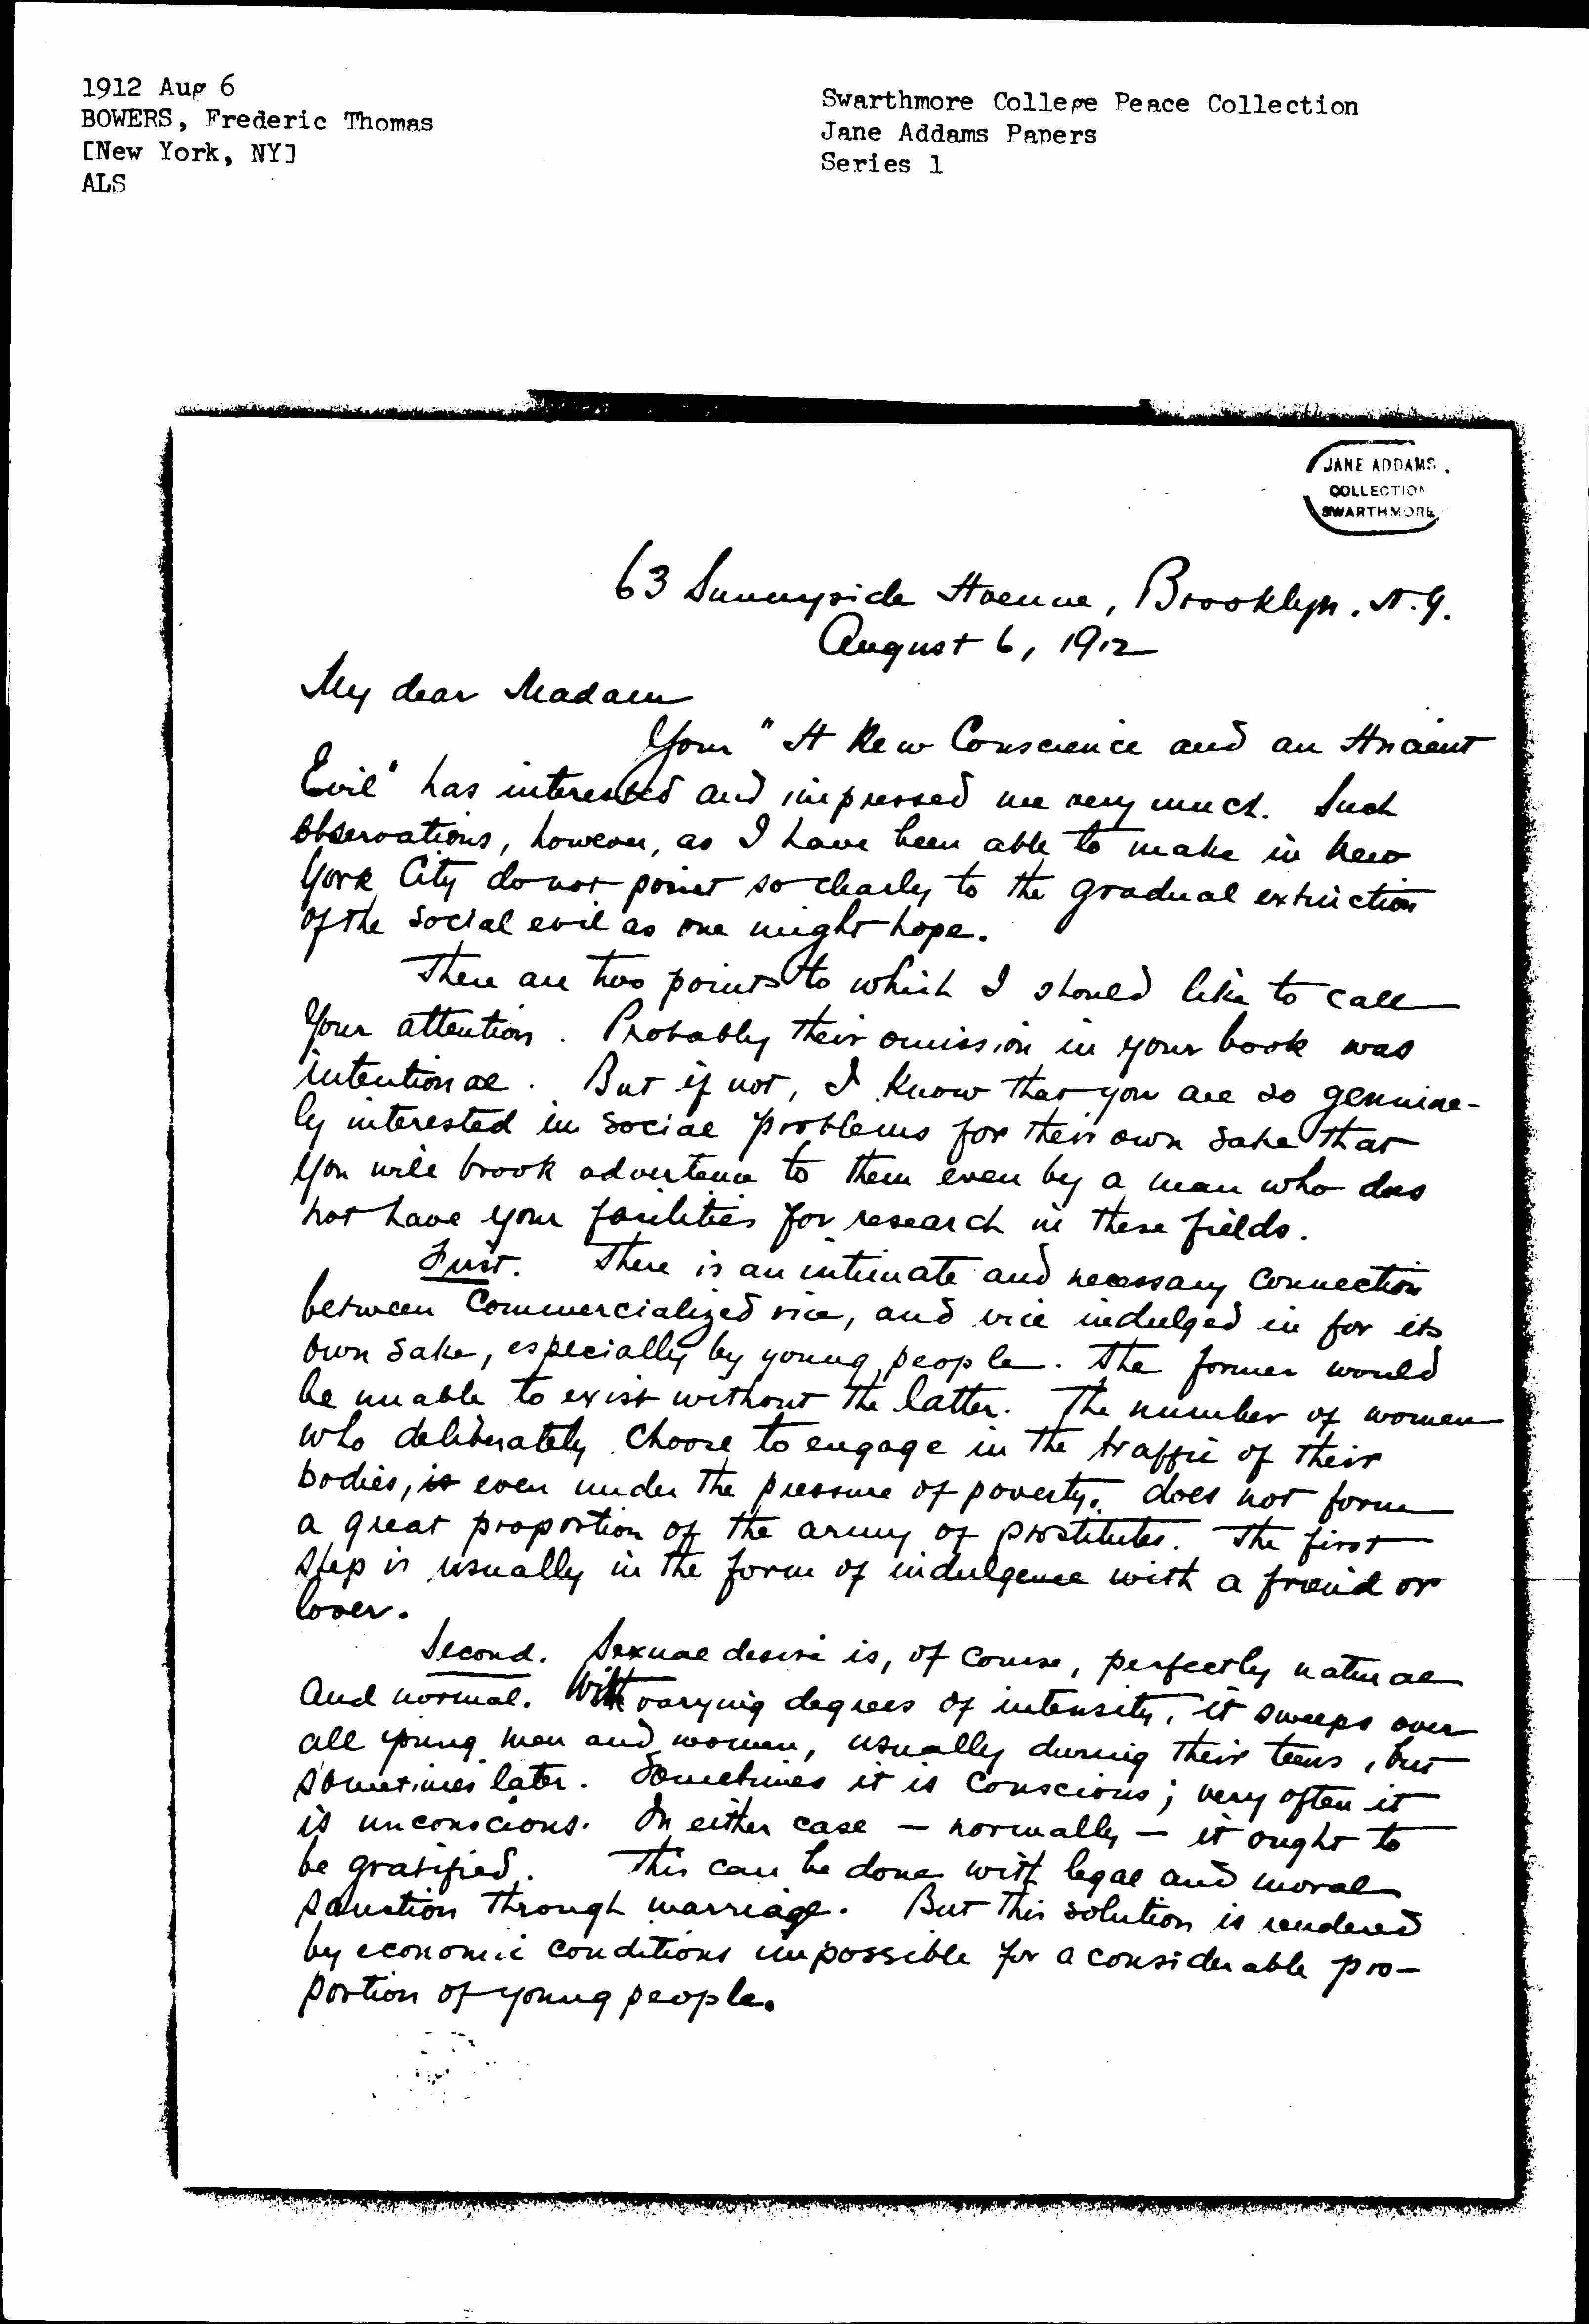 1912 Aug 6
BOWERS, Frederic Thomas
[New York, NY]
ALS
Swarthmore College Peace Collection
Jane Addams Papers
Series 1
JANE ADDAMS
COLLECTION
SWARTHMORE
63 Sunnyside Avenue, Brooklyn. N.Y.
August 6, 1912
My dear Madam
Your "A New Conscience and an Ancient
Evil" has interested and impressed me very much. Such
observations, however, as I have been able to make in New
York City do not point so clearly to the gradual extinction
of the social evil as one might hope.
There are two points to which I should like to call
your attention. Probably their omission in your book was
intentional. But if not, I know that you are so genuine-
ly interested in social problems for their own sake that
you will brook advertence to them even by a man who does
not have your facilities for research in these fields.
First. There is an intimate and necessary connection
between commercialized vice, and vice indulged in for its
own sake, especially by young people. The former would
be unable to exist without the latter. The number of women
who deliberately choose to engage in the traffic of their
bodies, is even under the pressure of poverty, does not form
a great proportion of the army of prostitutes. The first
step is usually in the form of indulgence with a friend or
lover.
Second. Sexual desire is, of course, perfectly natural
and normal. With varying degrees of intensity, it sweeps over
all young men and women, usually during their teens, but
sometimes later. Sometimes it is conscious; very often it
is unconscious. In either case — normally — it ought to
be gratified. This can be done with legal and moral
sanction through marriage. But this solution is rendered
by economic conditions impossible for a considerable pro-
portion of young people.